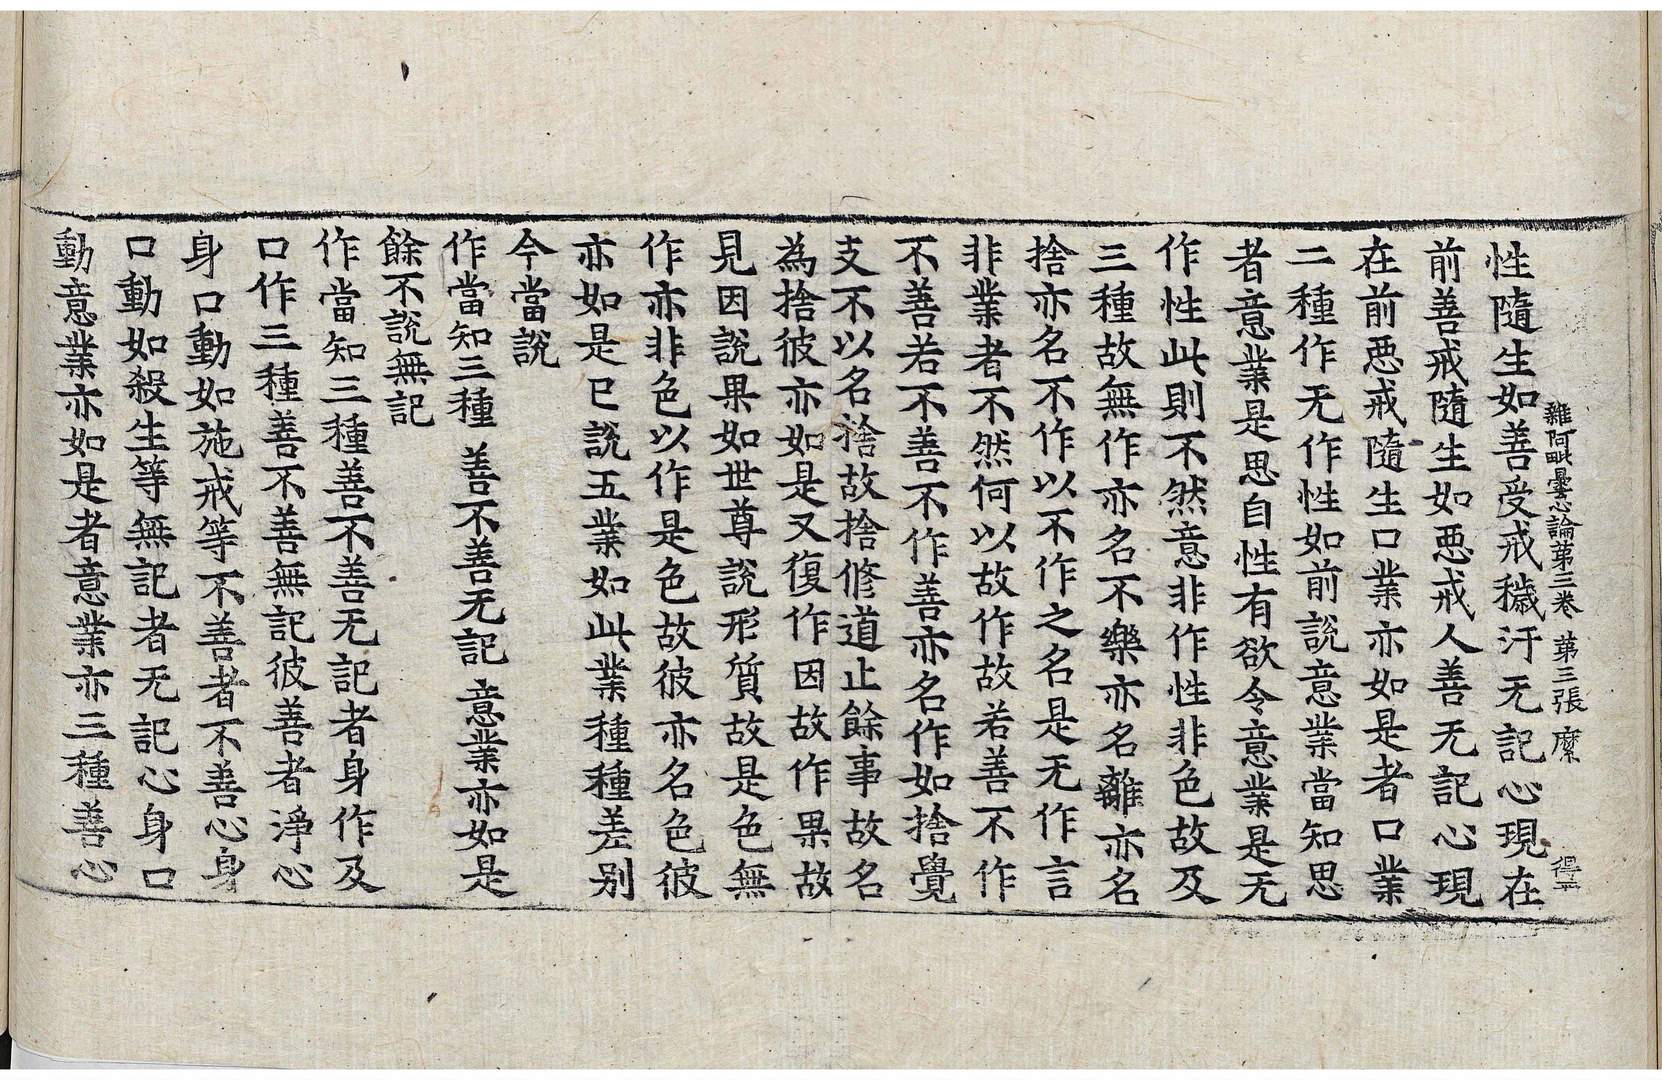 雜阿毗曇心論第三卷 第三張 縻 得
性隨生如善受戒穢汙无記心現在
前善戒隨生如悪戒人善无記心現
在前悪戒隨生口業亦如是者口業
二種作无作性如前說意業當知思
者意業是思自性有欲令意業是无
作性此則不然意非作性非色故及
三種故無作亦名不樂亦名離亦名
捨亦名不作以不作之名是无作言
非業者不然何以故作故若善不作
不善若不善不作善亦名作如捨覺
支不以名捨故捨修道止餘事故名
為捨彼亦如是又復作因故作果故
見因說果如世尊說形質故是色無
作亦非色以作是色故彼亦名色彼
亦如是已說五業如此業種種差别
今當說
作當知三種 善不善无記 意業亦如是
餘不說無記
作當知三種善不善无記者身作及
口作三種善不善無記彼善者淨心
身口動如施戒等不善者不善心身
口動如殺生等無記者无記心身口
動意業亦如是者意業亦三種善心